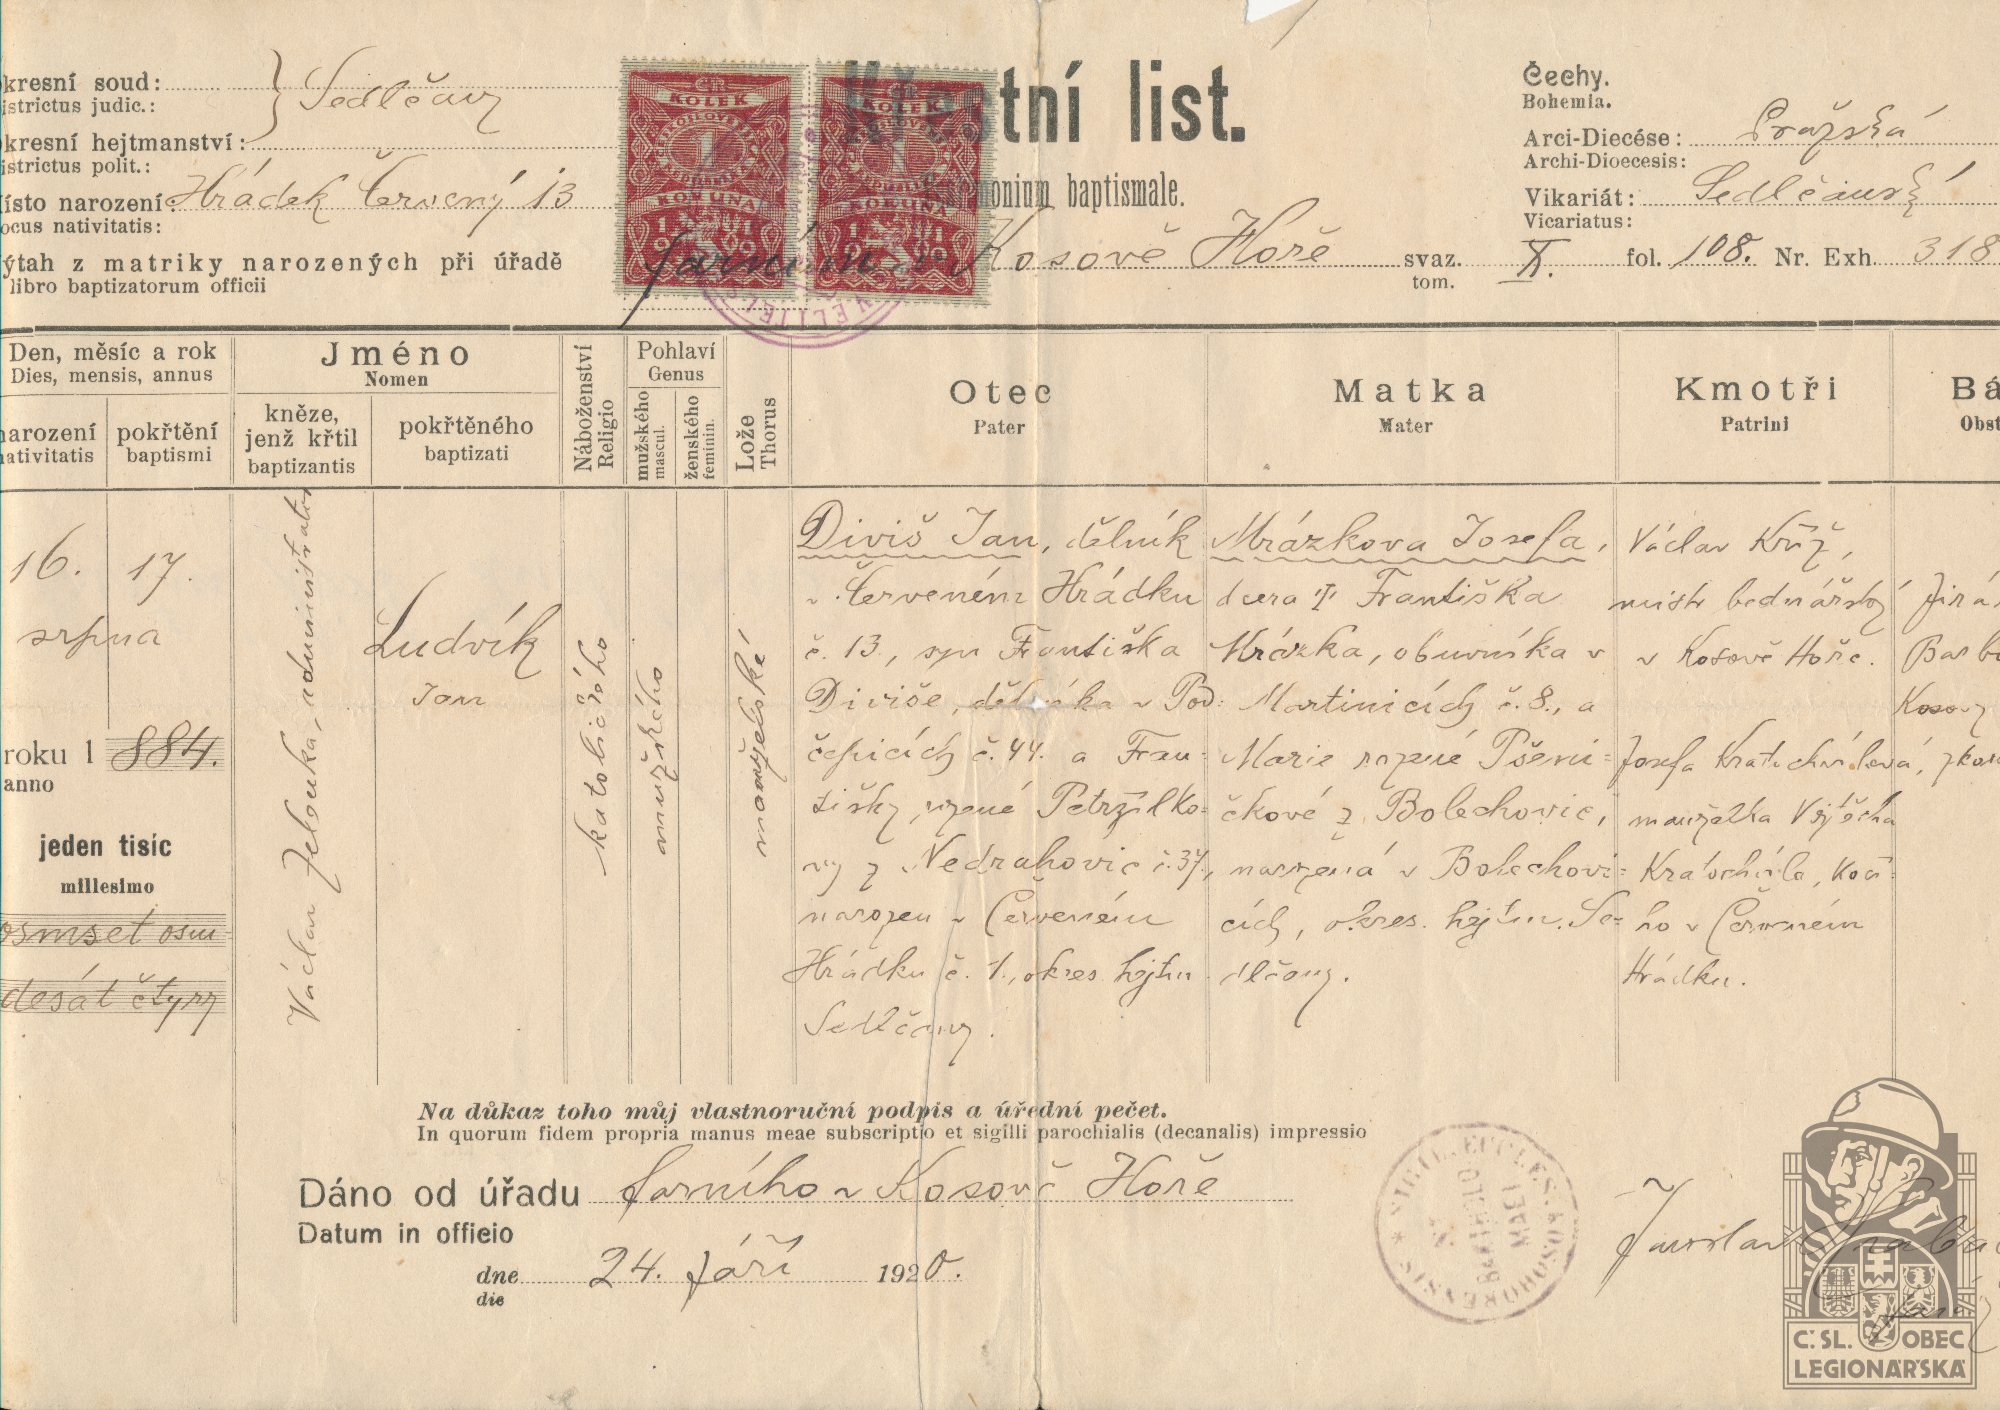 okresní soud: Sedlčany
districtus judic.:
okresní hejtmanství:
districtus polit.:
Místo narození: Hrádek Červený 13
locus nativitatis:
Výtah z matriky narozených při úřadě farním v Kosově Hoře svaz. X. fol. 108. Nr. Exh 318
libro baptizatorum officii
tom.
Křestní list.
Testimonium baptismale.
KOLEK
1
KORUNA
1919
KOLEK
1
KORUNA
1919
Čechy.
Bohemia.
Arci-Diecése: Pražská
Archi-Dioecesis:
Vikariát: Sedlčanský
Vicariatus:
Den, měsíc a rok
Dies, mensis, annus
narození
nativitatis
pokřtění
baptismi
Jméno
Nomen
kněze,
jenž křtil
baptizantis
pokřtěného
baptizati
Náboženství
Religio
Pohlaví
Genus
mužského
mascul.
ženského
feminin.
Lože
Thorus
Otec
Pater
Matka
Mater
Kmotři
Patrini
Bá
Obst
16. 17.
srpna
roku 1884.
anno
jeden tisíc
millesimo
osmset osm-
desát čtyry
Václav Jelonka, administrator
Ludvík
Jan
katolického
mužského
manželské
Diviš Jan, dělník
v Červeném Hrádku
č. 13., syn Františka
Diviše, dělníka v Pod-
čepicích č. 44. a Fran-
tišky, rozené Petržílko-
vy z Nedrahovic č. 37,
narozen v Červeném
Hrádku č. 1., okres. hejtm.
Sedlčany.
Mrázkova Josefa,
dcera † Františka
Mrázka, obuvníka v
Martinicích č. 8., a
Marie rozené Pšeni-
čkové z Bolechovic,
narozená v Bolechovi-
cích, okres. hejtm. Se-
dlčany.
Václav Kříž,
mistr bednářský
v Kosově Hoře.
Josefa Kratochvílová,
manželka Vojtěcha
Kratochvíla, koč-
ho v Červeném
Hrádku.
Jirá
Barb
Kosovy
zkou
Na důkaz toho můj vlastnoruční podpis a úřední pečet.
In quorum fidem propria manus meae subscriptio et sigilli parochialis (decanalis) impressio
Dáno od úřadu farního v Kosově Hoře
Datum in officio
dne 24. září 1920.
die
Jaroslav
Č. SL. OBEC
LEGIONÁŘSKÁ